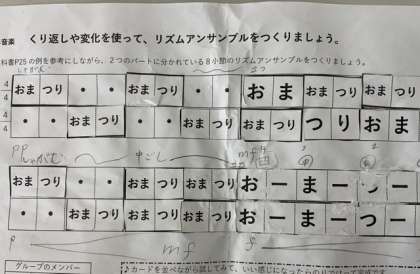 音楽 くり返しや変化を使って、リズムアンサンブルをつくりましょう。
科書P25の例を参考にしながら、2つのパートに分かれている8小節のリズムアンサンブルをつくりましょう。
4 4 おま つり ・ ・ おま つり ・ ・ お ま おま つり おま つり
4 4 ・ ・ おま つり ・ ・ おま つり おま つり つ り お ま
PP しゃがむ 中ごし mf
おま つり ・ ・ おま つり おま つり お ー ま ー つ ー
・ ・ おま つり おま つり おま つり お ー ま ー つ ー
P mf f
グループのメンバー
♪カードを並べながら試してみて、いい感じになったら